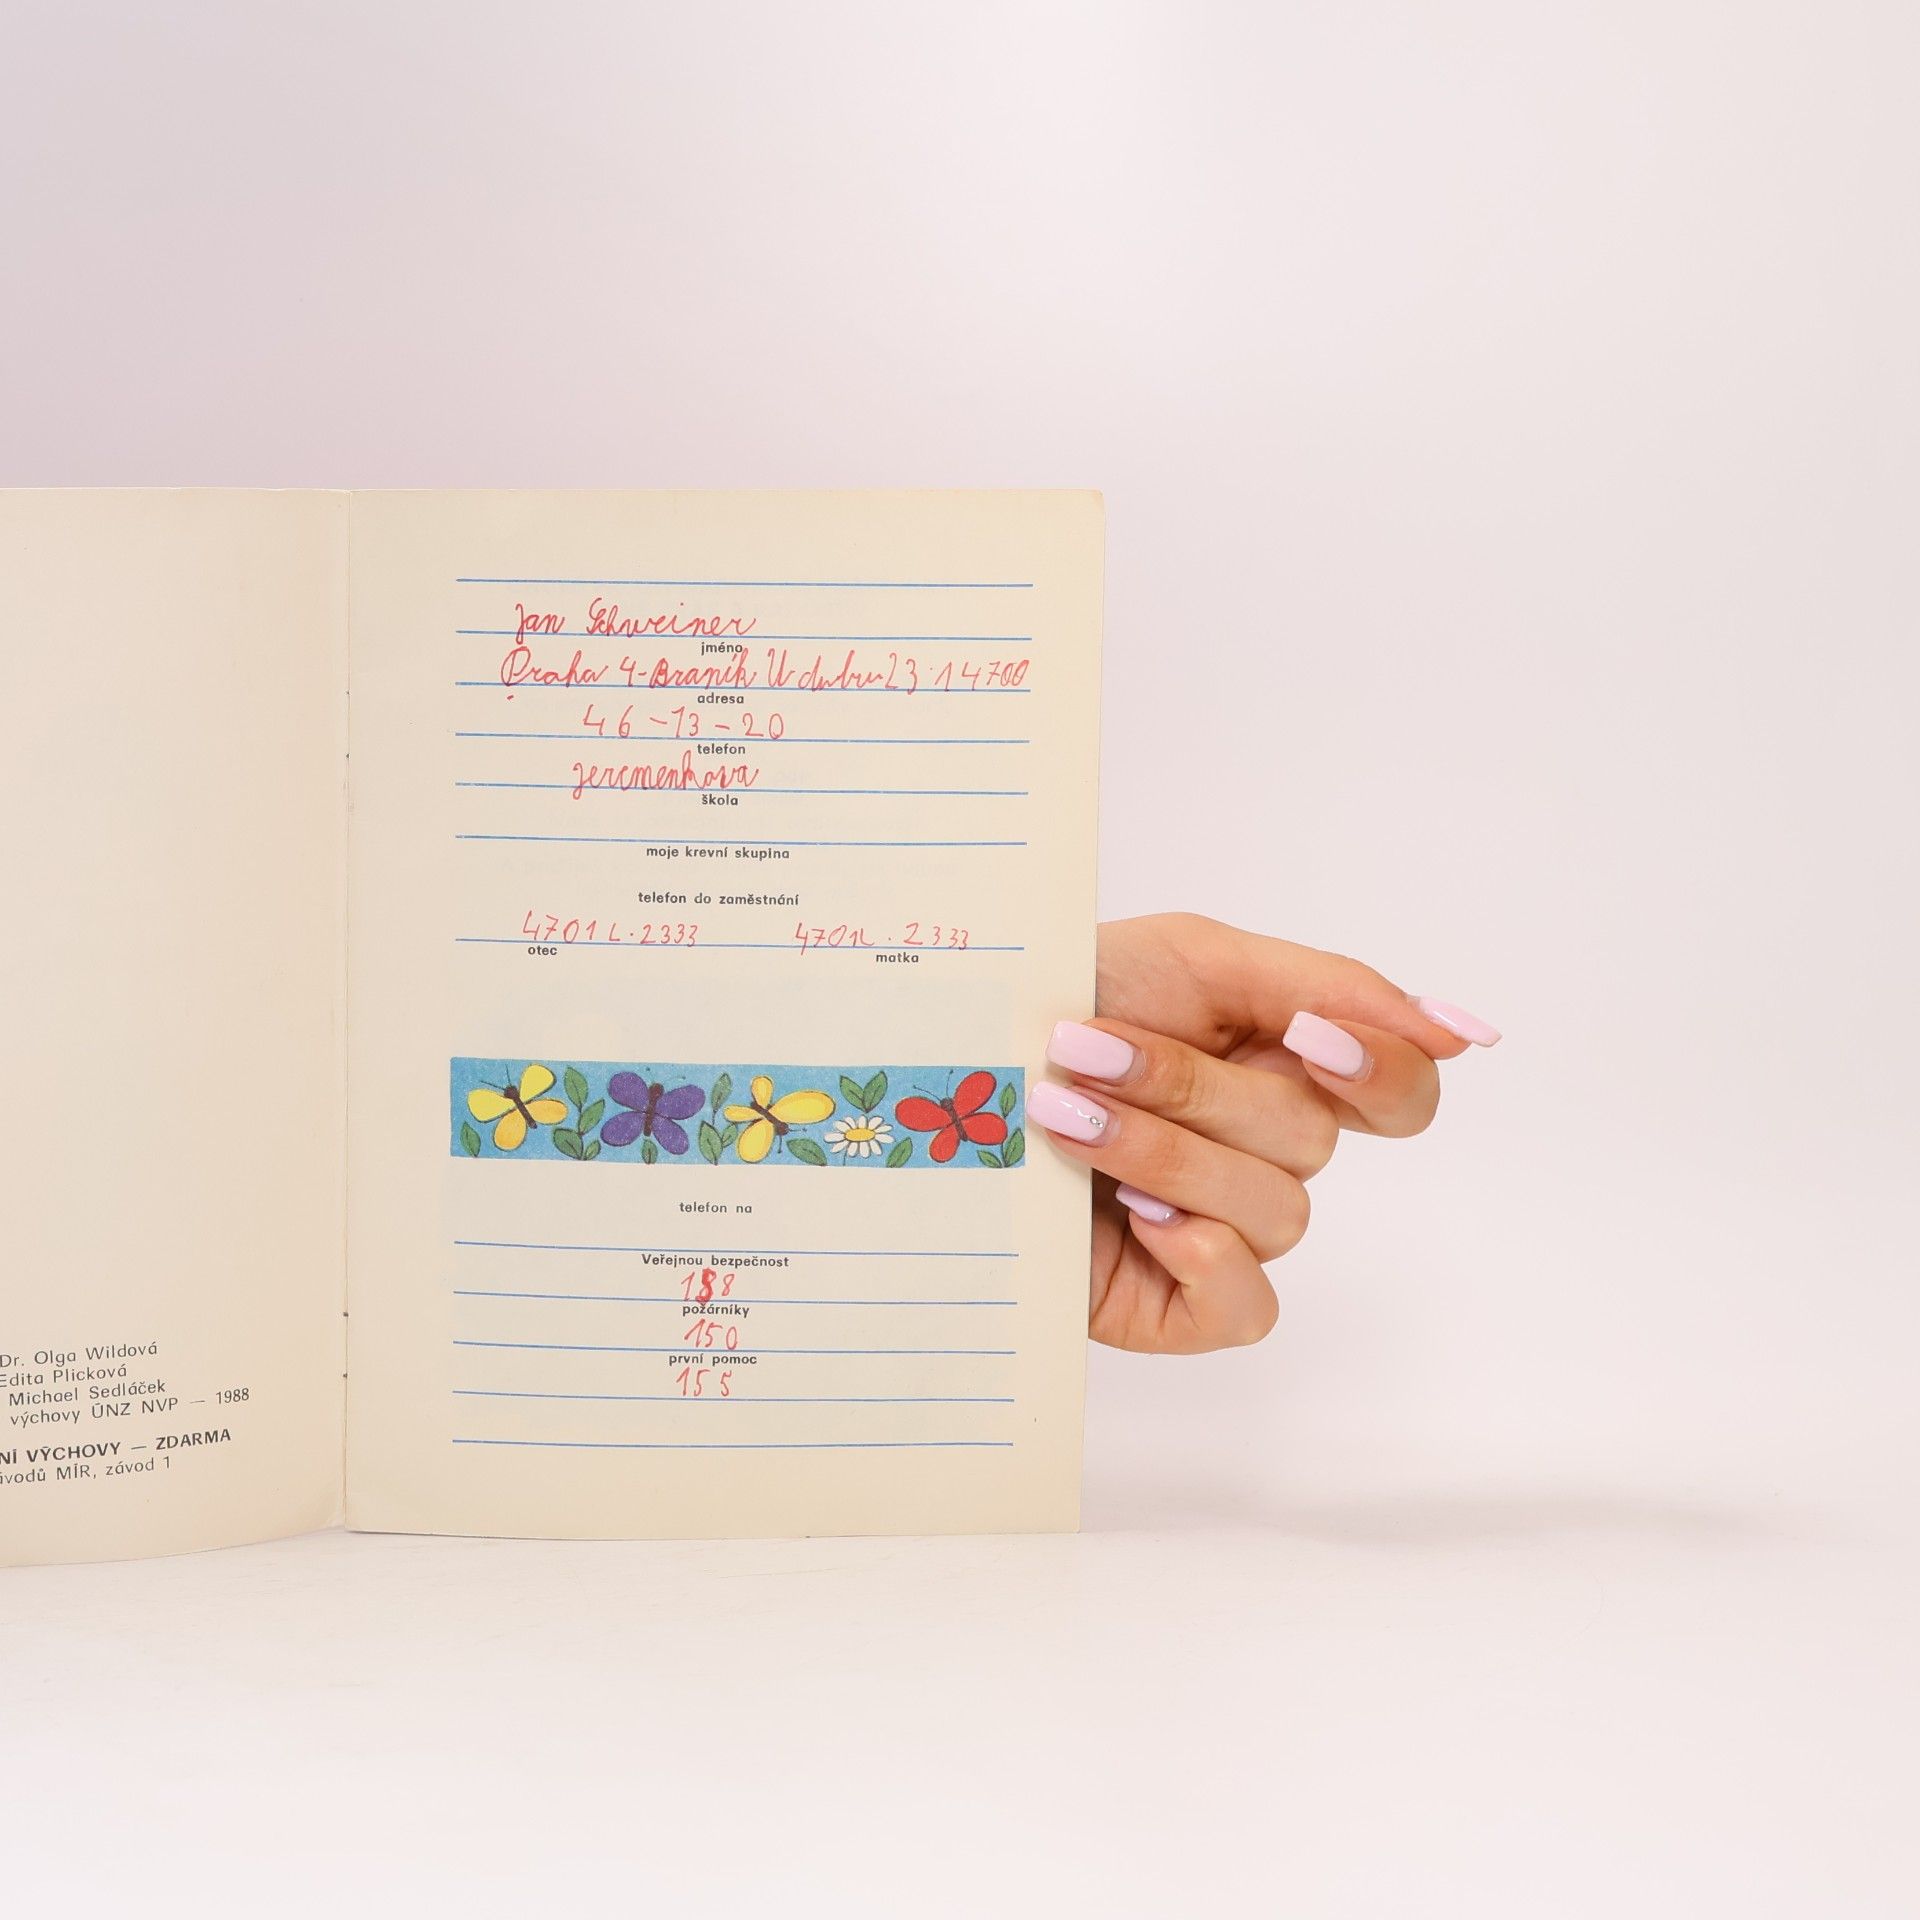 Dr. Olga Wildová
Edita Plicková
Michael Sedláček
výchovy ÚNZ NVP — 1988
NÍ VÝCHOVY — ZDARMA
ávodů MÍR, závod 1
Jan Schweiner
jméno
Praha 4-Braník U dubu 23 · 14700
adresa
46 - 13 - 20
telefon
jeremenkova
škola
moje krevní skupina
telefon do zaměstnání
4701 L. 2333 4701L . 2333
otec matka
telefon na
Veřejnou bezpečnost
158
požárníky
150
první pomoc
155